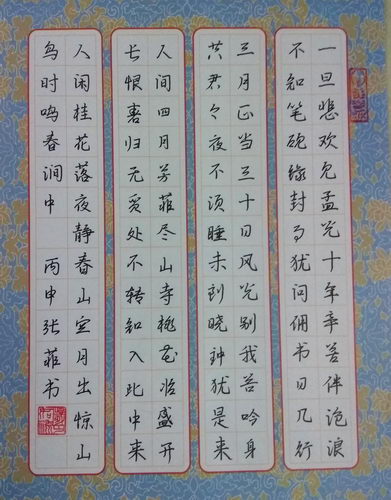 一旦悲欢见孟光十年辛苦伴沧浪
不知笔砚缘封事犹问佣书日几行
三月正当三十日风光别我苦吟身
共君今夜不须睡未到晓钟犹是春
人间四月芳菲尽山寺桃花始盛开
长恨春归无觅处不转知入此中来
人闲桂花落夜静春山空月出惊山
鸟时鸣春涧中 丙申张菲书